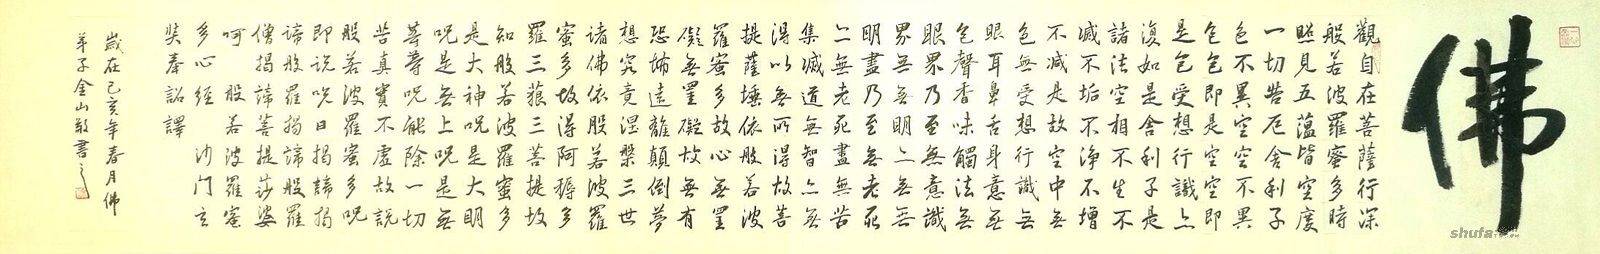 佛
觀自在菩薩行深
般若波羅蜜多時
照見五蘊皆空度
一切苦厄舍利子
色不異空空不異
色色即是空空即
是色受想行識亦
復如是舍利子是
諸法空相不生不
滅不垢不淨不增
不減是故空中無
色無受想行識無
眼耳鼻舌身意無
色聲香味觸法無
眼界乃至無意識
界無無明亦無無
明盡乃至無老死
亦無老死盡無苦
集滅道無智亦無
得以無所得故菩
提薩埵依般若波
羅蜜多故心無罣
礙無罣礙故無有
恐怖遠離顛倒夢
想究竟涅槃三世
諸佛依般若波羅
蜜多故得阿耨多
羅三藐三菩提故
知般若波羅蜜多
是大神呪是大明
呪是無上呪是無
等等呪能除一切
苦真實不虛故說
般若波羅蜜多呪
即說呪曰揭諦揭
諦般羅揭諦般羅
僧揭諦菩提莎婆
呵 般若波羅蜜
多心經 沙門玄
奘奉詔譯
歲在己亥年春月佛
弟子金山敬書之
shufa